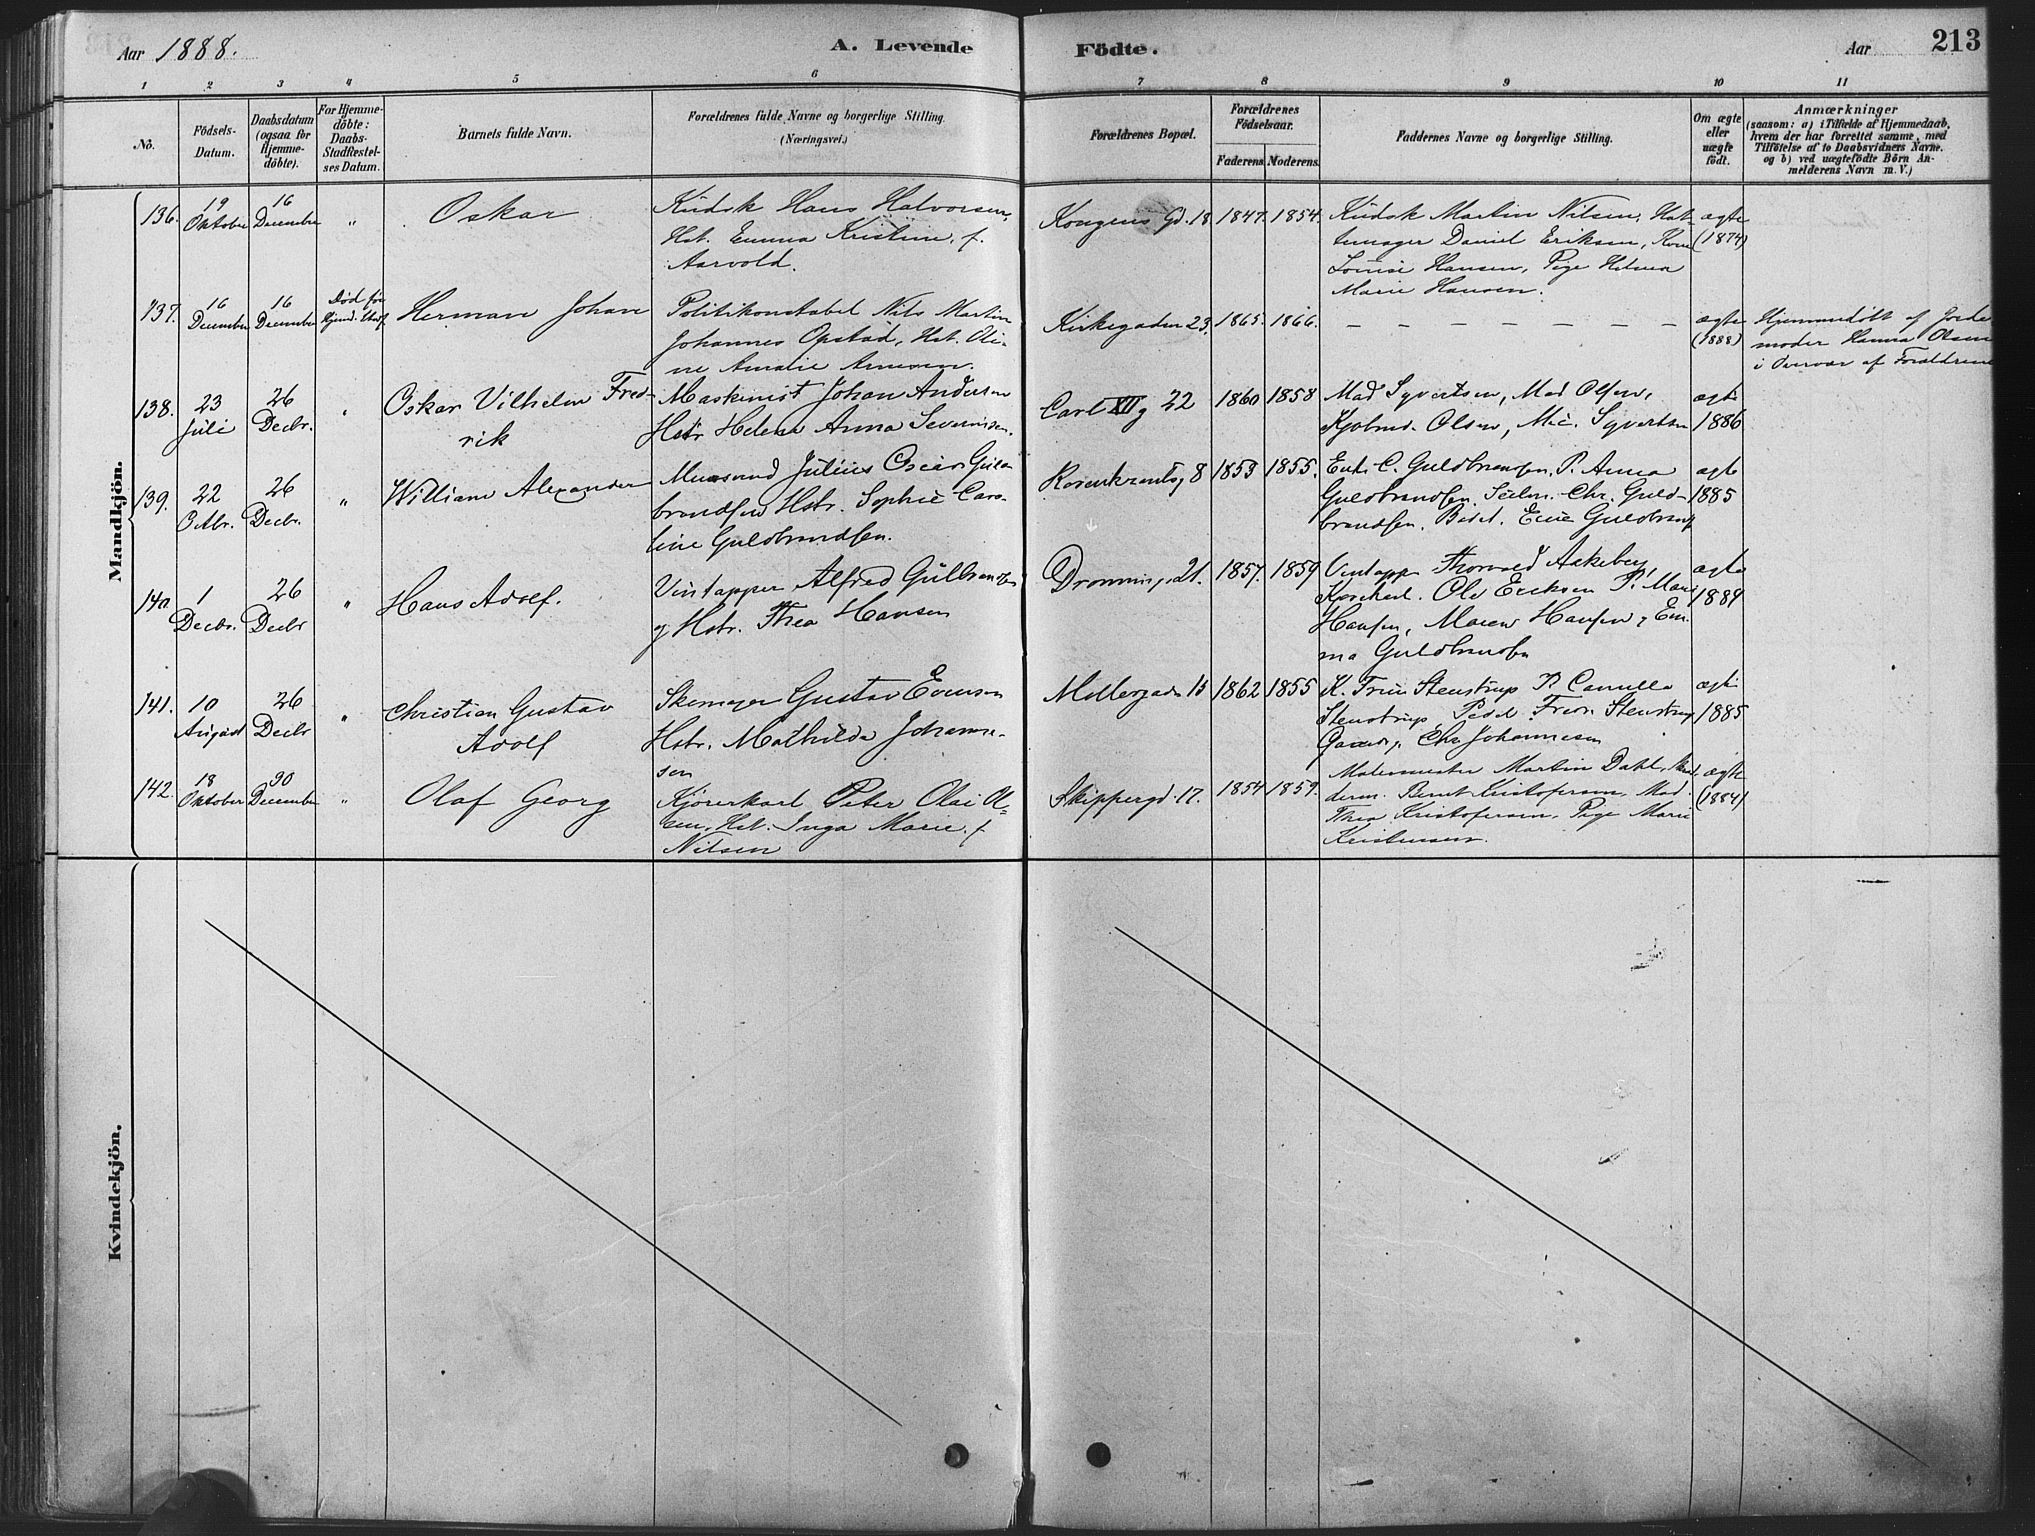 Aar 1888.
A. Levende Födte.
Aar
213
1 2 3 4 5 6 7 8 9 10 11
No.
Födsels-
Datum.
Daabsdatum
(ogsaa for
Hjemme-
döbte).
For Hjemme-
döbte:
Daabs-
Stadfæstel-
ses Datum.
Barnets fulde Navn.
Forældrenes fulde Navne og borgerlige Stilling.
(Næringsvei.)
Forældrenes Bopæl.
Forældrenes
Födselsaar.
Faderens Moderens.
Faddernes Navne og borgerlige Stilling.
Om ægte
eller
uægte
født.
Anmærkninger
(saasom: a) i Tilfælde af Hjemmedaab,
hvem der har forrettet samme, med
Tilföielse af to Daabsvidners Navne.
og b) ved uægtefödte Börn An-
melderens Navn m. V.)
Mandkjön.
136. 19 Oktober 16 December " Oskar
Kudsk Hans Halvorsen,
Hst. Emma Kristine, f.
Aarvold.
Kongens Gd. 18. 1847. 1854.
Kudsk Martin Nilsen, Hat-
temager Daniel Eriksen, Kone
Louise Hansen, Pige Helma
Marie Hansen.
ægte
(1874)
137. 16 December 16 December Død før
Hjemd. Stadf.
Herman Johan
Politikonstabel Nils Martin
Johannes Opstad, Hst. Oli-
ne Amalie Arnesen.
Kirkegaden 23. 1865. 1866. – – – – – – –
ægte
(1888)
Hjemmedøbt af Jorde-
moder Hanna Olsen
i Overvær af Forældrene
138. 23 Juli 26 Decbr. " Oskar Vilhelm Fred-
rik
Maskinist Johan Andersen
Hstr Helene Anna Severinsen.
Carl XII g 22 1860 1858
Mad Syvertsen, Mad Olsen,
Olsen, Syvertsen
ægte
1886
139. 22 Octbr. 26 Decbr. " William Alexander
Murswend Julius Oscar Guld-
brandsen Hstr. Sophie Caro-
line Guldbrandsen.
Rosenkrantzg 8 1853 1855.
Enk. C. Guldbrandsen, P. Anna
Guldbrandsen, Chr. Guld-
brandsen,
ægte
1885
140 1 Decbr. 26 Decbr " Hans Adolf.
Vintapper Alfred Gulbrandsen
og Hstr. Thea Hansen
Dronning g 21. 1857. 1859
Vintapp Thorvald Aakeberg,
Ole Ericksen P. Marie
Hansen, Maren Hansen, Em-
ma Guldbrandsen
ægte
1884
141. 10 August 26 Decbr " Christian Gustav
Adolf
Skomager Gustav Evensen
Hstr. Mathilde Johanne-
sen
Møllergade 15 1862 1855
K. Trine Stenstrup P. Camilla
Stenstrup, Fredr. Stenstrup
Chr Johannesen
ægte
1885
142. 18 Oktober 30 December " Olaf Georg
Kjørerkarl Peter Olai Ol-
sen, Hst. Inga Marie, f.
Nilsen
Skippergd. 17. 1854 1859.
Malermester Martin Dahl,
Bernt Kristofersen, Mad.
Thea Kristofersen, Pige Marie
Kristensen.
ægte
(1884)
Kvindekjön.